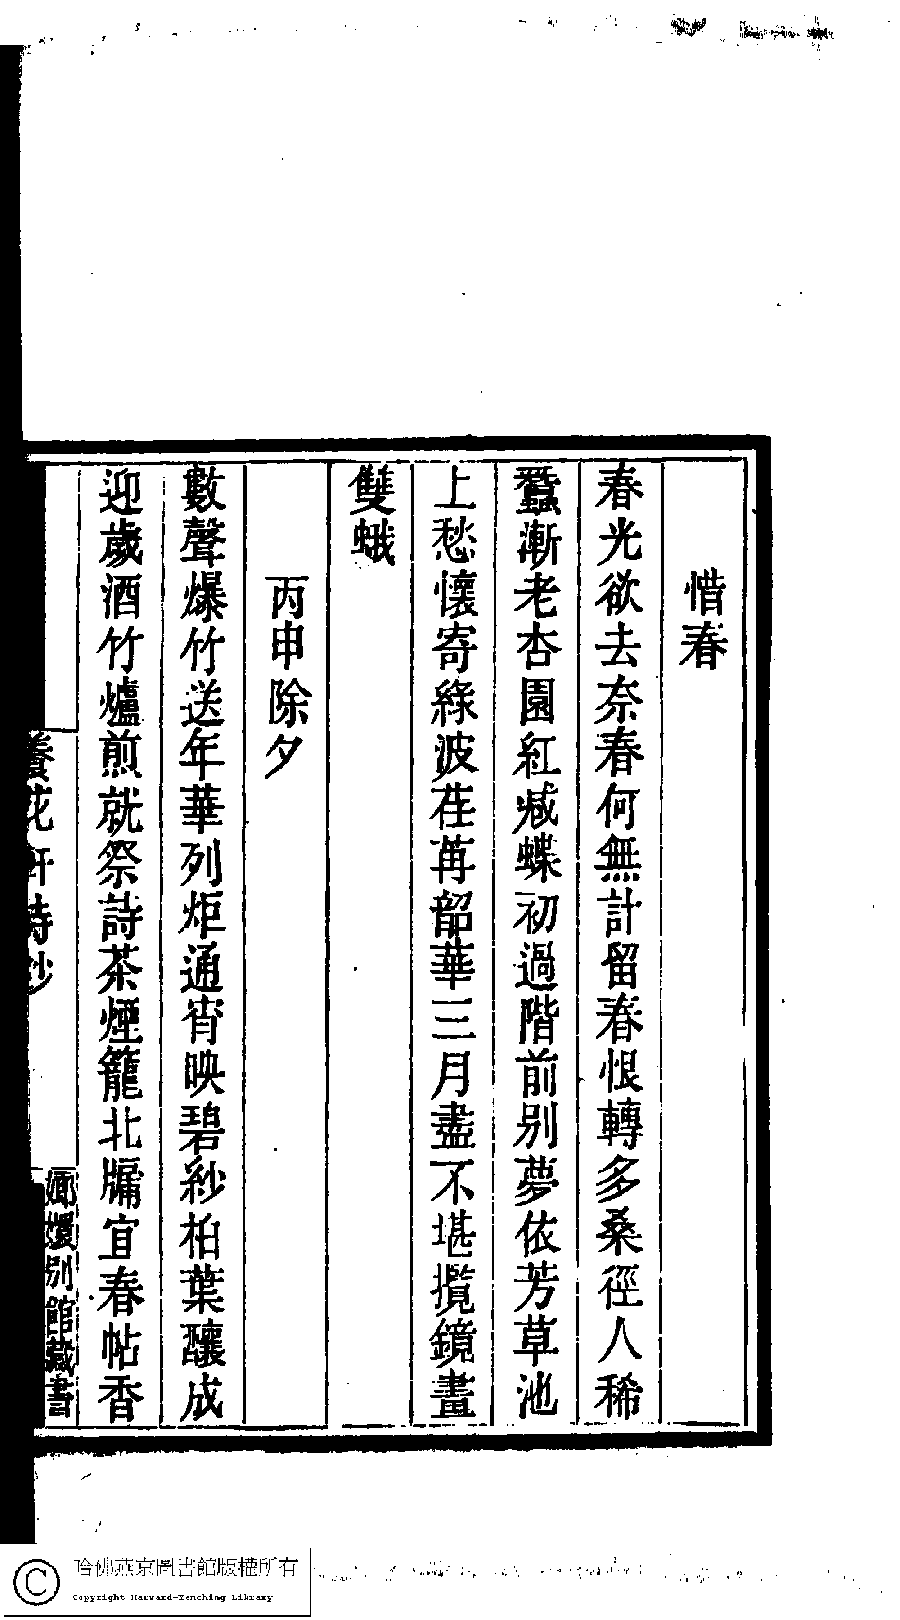 惜春
春光欲去奈春何無計留春恨轉多桑徑人稀
蠶漸老杏園紅减蝶初過階前别夢依芳草池
上愁懷寄綠波荏苒韶華三月盡不堪攬鏡畫
雙蛾
丙申除夕
數聲爆竹送年華列炬通宵映碧紗柏葉釀成
迎歲酒竹爐煎就祭詩茶煙籠北牖宜春帖香
養花軒詩鈔
嫏嬛别館藏書
哈佛燕京圖書館版權所有
Copyright Harvard-Yenching Library